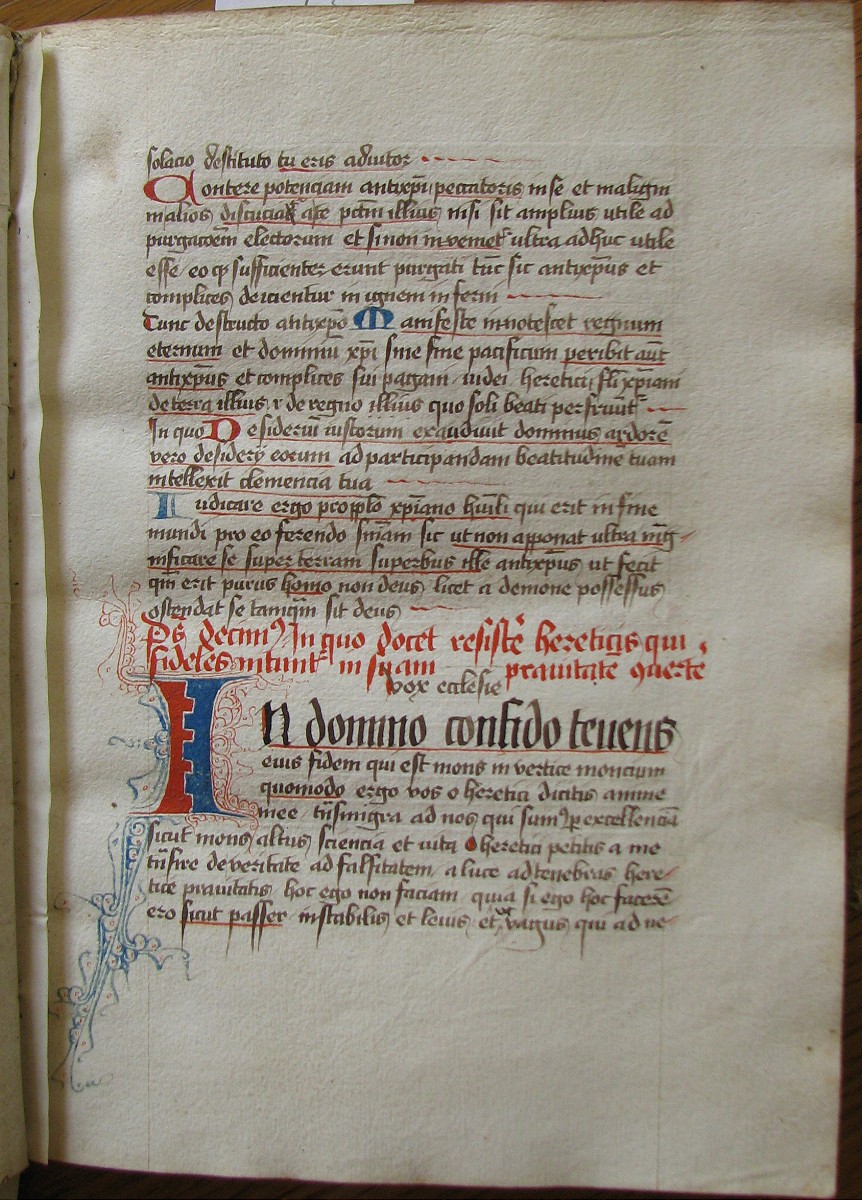 solacio destituto tu eris adiutor
Contere potenciam antixp̄i peccatoris in se et maligni
in alios discuciat̄ aūte pctm̄ illius nisi sit amplius utile ad
purgacōem electorum et si non inveniet᷑ ultra adhuc utile
esse eo ꝙ sufficienter erunt purgati tūc sic antixp̄us et
complices deicientur in ignem inferni
Tunc destructo antixp̄o Manifeste innotescet regnum
eternum et dominiū xp̄i sine fine pacificum peribit aūt
antixp̄us et complices sui pagani iudei heretici fl̄i xp̄iani
de terra illius ⁊ de regno illius quo soli beati perfruūt᷑
In quo Desideriū iustorum exaudivit dominus ardorē
vero desiderij eorum ad participandam beatitudinē tuam
intellexit clemencia tua
Iudicare ergo pro pplo xp̄iano hūili qui erit in fine
mundi pro eo ferendo sn̄iam sic ut non apponat ultra mag
nificare se super terram superbus ille antixp̄us ut fecit
qui erit purus homo non deus licet a demone possessus
ostendat se tamq̄m sit deus
Ps̄ decimꝰ In quo docet resistē hereticis qui
fideles nitunt᷑ in suam pravitatē ꝯvertē
vox ecclesie
In domino confido tenens
eius fidem qui est mons in vertice moncium
quomodo ergo vos o heretici dicitis anime
mee trāsmigra ad nos qui sumꝰ ꝑ excellenciā
sicut mons altus sciencia et vita o heretici petitis a me
trāsire de veritate ad falsitatem a luce ad tenebras here
tice pravitatis hoc ego non faciam quia si ego hoc facerē
ero sicut passer instabilis et levis et vagus qui ad ne